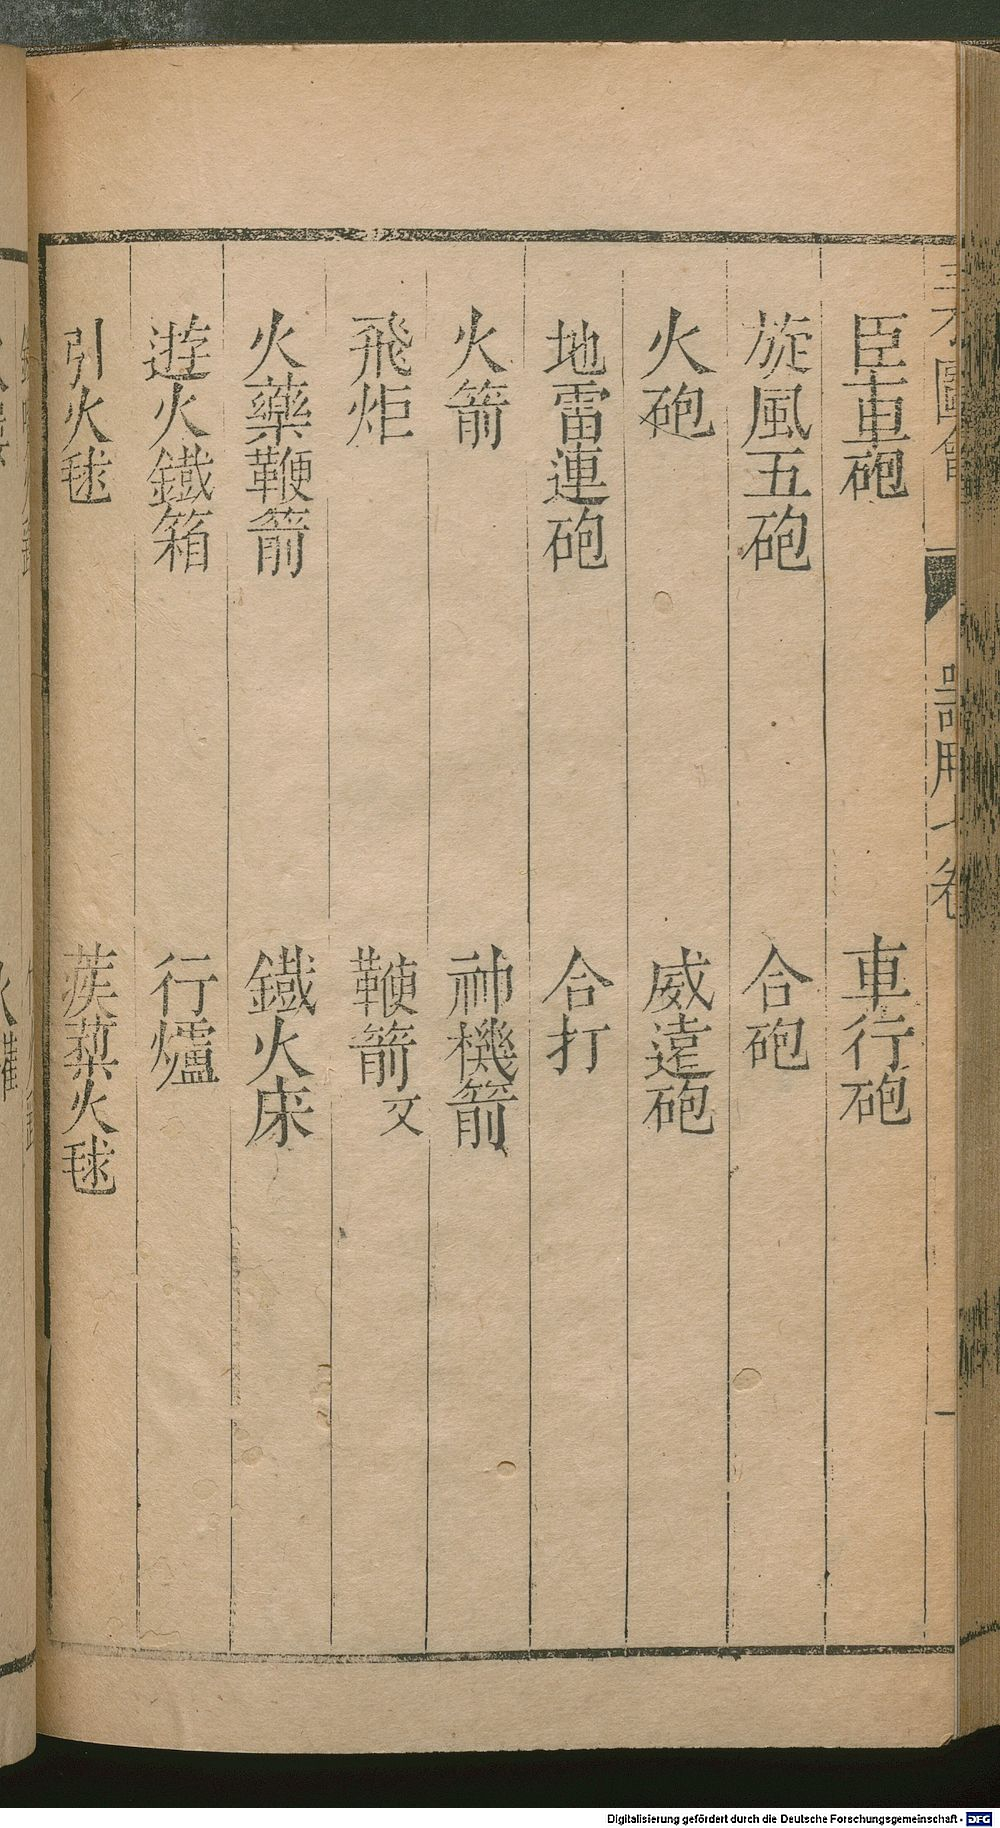 三才圖會 器用七卷
臣車砲 車行砲
旋風五砲 合砲
火砲 威遠砲
地雷連砲 合打
火箭 神機箭
飛炬 鞭箭文
火藥鞭箭 鐵火床
遊火鐵箱 行爐
引火毬 蒺蔾火毬
Digitalisierung gefördert durch die Deutsche Forschungsgemeinschaft - DFG